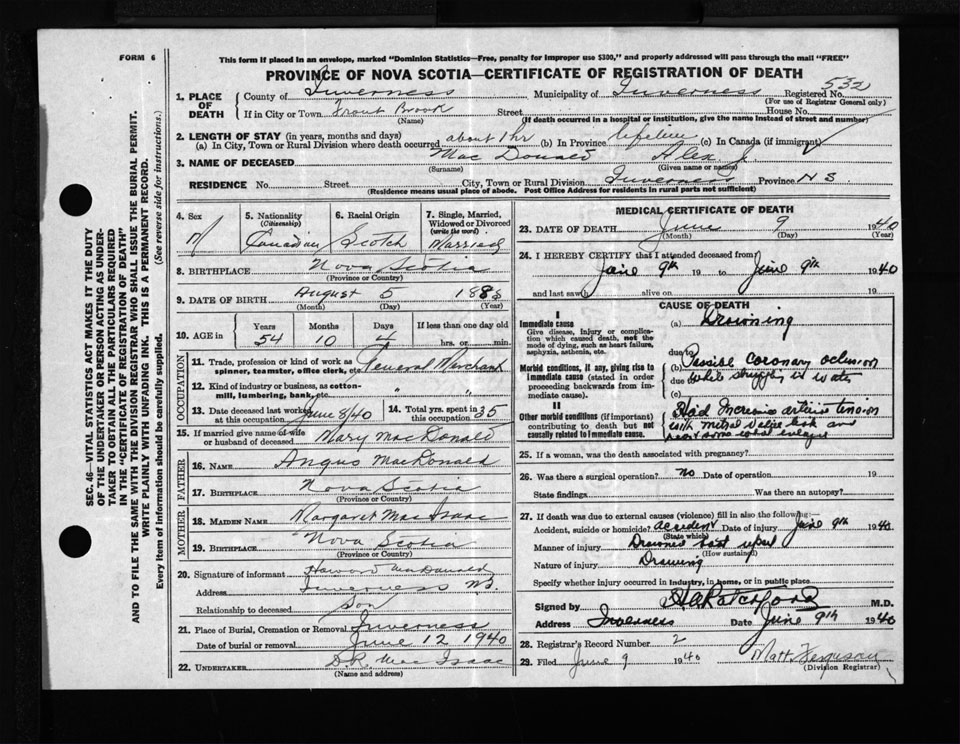 FORM 6
This form if placed in an envelope, marked "Dominion Statistics—Free, penalty for improper use $300," and properly addressed will pass through the mail "FREE"
PROVINCE OF NOVA SCOTIA—CERTIFICATE OF REGISTRATION OF DEATH
532
1. PLACE OF DEATH County of Inverness Municipality of Inverness Registered No.
(For use of Registrar General only)
If in City or Town Trout Brook Street House No.
(Name) (If death occurred in a hospital or institution, give the name instead of street and number)
2. LENGTH OF STAY (in years, months and days)
(a) In City, Town or Rural Division where death occurred about 1 hr (b) In Province lifetime (c) In Canada (if immigrant)
3. NAME OF DECEASED Mac Donald Alex J.
(Surname) (Given name or names)
RESIDENCE No. Street City, Town or Rural Division Inverness Province N S
(Residence means usual place of abode. Post Office Address for residents in rural parts not sufficient)
4. Sex M
5. Nationality (Citizenship) Canadian
6. Racial Origin Scotch
7. Single, Married, Widowed or Divorced (write the word) Married
8. BIRTHPLACE Nova Scotia
(Province or Country)
9. DATE OF BIRTH August 5 1885
(Month) (Day) (Year)
10. AGE in Years 54 Months 10 Days 4 If less than one day old hrs. or min.
OCCUPATION
11. Trade, profession or kind of work as spinner, teamster, office clerk, etc. General Merchant
12. Kind of industry or business, as cotton-mill, lumbering, bank, etc. "
13. Date deceased last worked at this occupation June 8/40 14. Total yrs. spent in this occupation 35
15. If married give name of wife or husband of deceased Mary MacDonald
FATHER
16. NAME Angus MacDonald
17. BIRTHPLACE Nova Scotia
(Province or Country)
MOTHER
18. MAIDEN NAME Margaret Mac Isaac
19. BIRTHPLACE Nova Scotia
(Province or Country)
20. Signature of informant Howard MacDonald
Address Inverness N.S.
Relationship to deceased Son
21. Place of Burial, Cremation or Removal Inverness
Date of burial or removal June 12 1940
22. UNDERTAKER D.R. Mac Isaac
(Name and address)
MEDICAL CERTIFICATE OF DEATH
23. DATE OF DEATH June 9 1940
(Month) (Day) (Year)
24. I HEREBY CERTIFY that I attended deceased from
June 9th 19 to June 9th 1940
and last saw alive on 19
CAUSE OF DEATH
I
Immediate cause
Give disease, injury or complication which caused death, not the mode of dying, such as heart failure, asphyxia, asthenia, etc.
(a) Drowning
due to
Morbid conditions, if any, giving rise to immediate cause (stated in order proceeding backwards from immediate cause).
(b) Possible coronary oclusion
due to while struggling in water
(c)
II
Other morbid conditions (if important) contributing to death but not causally related to immediate cause.
Had
with mitral valve leak and
25. If a woman, was the death associated with pregnancy?
26. Was there a surgical operation? No Date of operation 19
State findings Was there an autopsy?
27. If death was due to external causes (violence) fill in also the following:—
Accident, suicide or homicide? accident Date of injury June 9th 1940
(State which)
Manner of injury Drowned boat upset
(How sustained)
Nature of injury Drowning
Specify whether injury occurred in industry, in home, or in public place
Signed by M.D.
Address Inverness Date June 9th 1940
28. Registrar's Record Number 2
29. Filed June 9 1940 Matt Ferguson
(Division Registrar)
SEC. 46—VITAL STATISTICS ACT MAKES IT THE DUTY
OF THE UNDERTAKER OR PERSON ACTING AS UNDER-
TAKER TO OBTAIN ALL THE PARTICULARS REQUIRED
IN THE "CERTIFICATE OF REGISTRATION OF DEATH"
AND TO FILE THE SAME WITH THE DIVISION REGISTRAR WHO SHALL ISSUE THE BURIAL PERMIT.
WRITE PLAINLY WITH UNFADING INK. THIS IS A PERMANENT RECORD.
Every item of information should be carefully supplied. (See reverse side for instructions.)